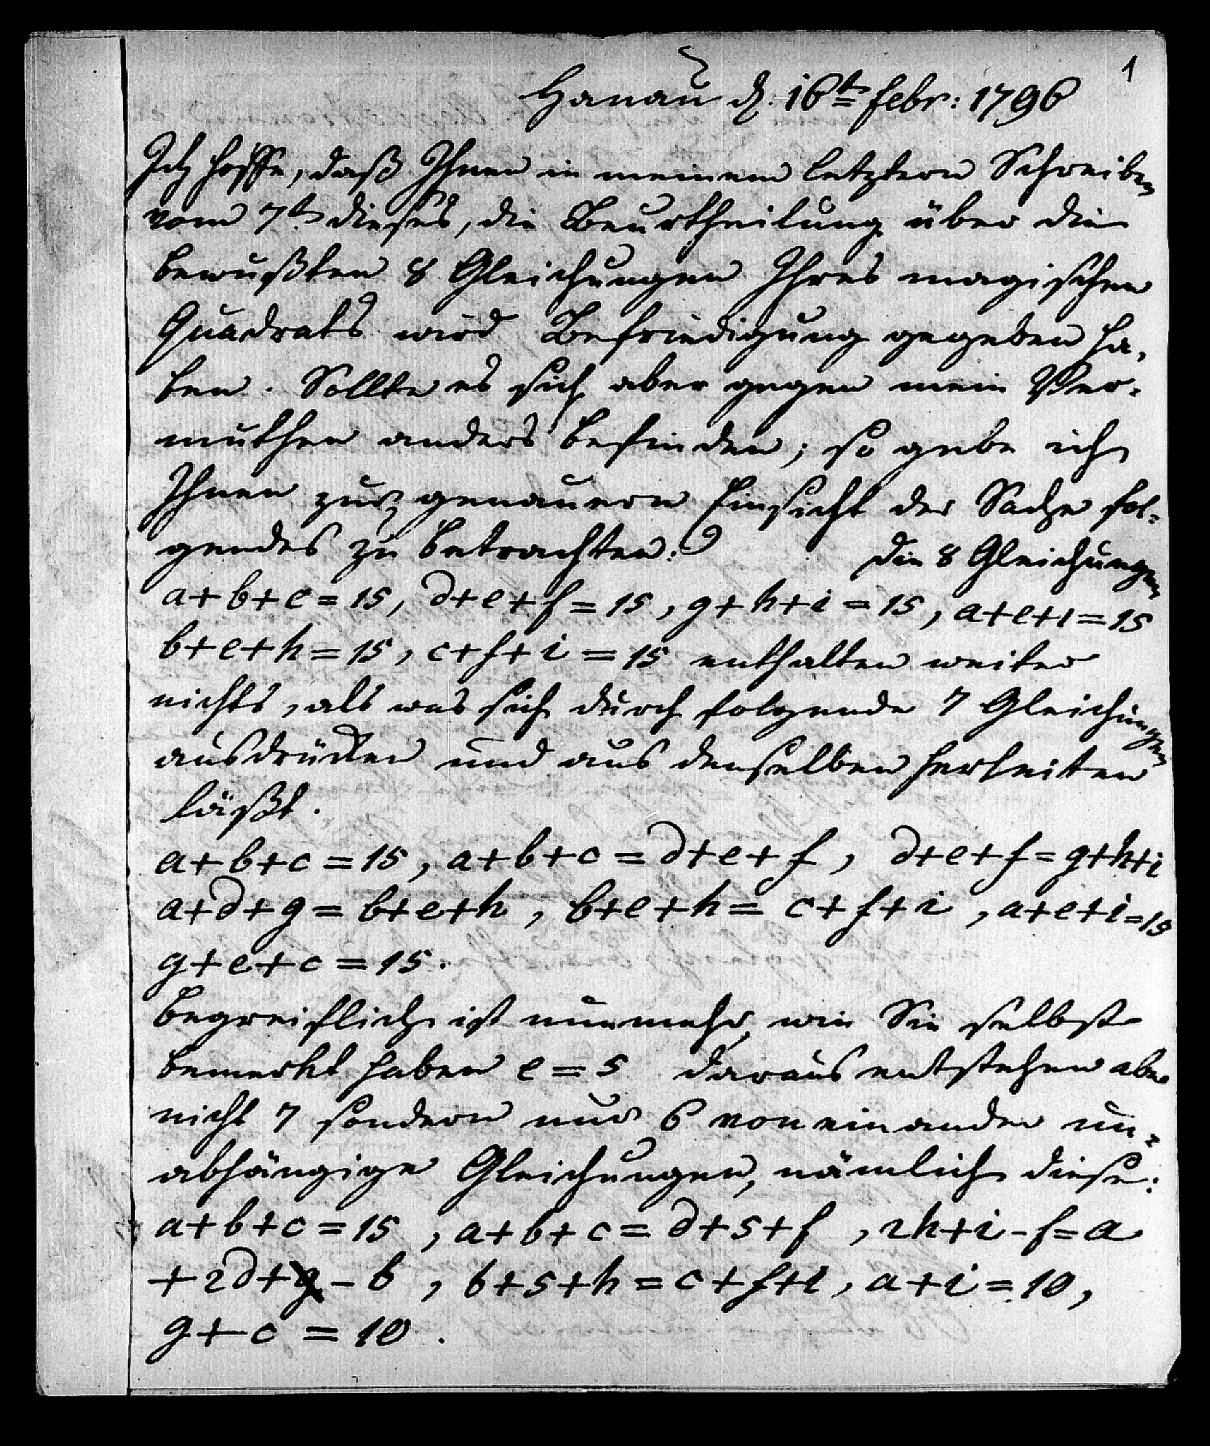 1
Hanau d. 16t Febr: 1796
Ich hoffe, daß Ihnen in meinem letztern Schreiben
vom 7t dieses, die Beurtheilung über die
bewußten 8 Gleichungen Ihres magischen
Quadrats wird Befriedigung gegeben ha,
ben. Sollte es sich aber gegen mein Ver-
muthen anders befinden; so gebe ich
Ihnen zur genauern Einsicht der Sache fol-
gendes zu betrachten:
die 8 Gleichungen
a+b+c=15, d+e+f=15, g+h+i=15, a+e+i=15
b+e+h=15, c+f+i=15 enthalten weiter
nichts, als was sich durch folgende 7 Gleichungen
ausdrücken und aus denselben herleiten
läßt.
a+b+c=15, a+b+c=d+e+f, d+e+f=g+h+i
a+d+g=b+e+h, b+e+h=c+f+i, a+e+i=15
g+e+c=15.
Begreiflich ist nunmehr, wie Sie selbst
bemerkt haben e=5 daraus entstehen aber
nicht 7 sondern nur 6 von einander un-
abhängige Gleichungen, nämlich diese:
a+b+c=15, a+b+c=d+5+f, 2h+i-f=a
+2d+g-b, b+5+h=c+f+i, a+i=10,
g+c=10.